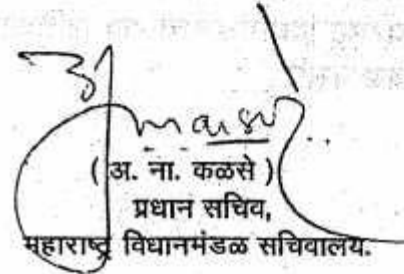 ( अ. ना. कळसे )
प्रधान सचिव,
महाराष्ट्र विधानमंडळ सचिवालय.